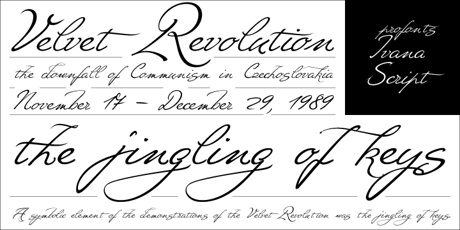 Velvet Revolution
the downfall of Communism in Czechoslovakia
November 17 – December 29, 1989
the jingling of keys
A symbolic element of the demonstrations of the Velvet Revolution was the jingling of keys.
profonts
Ivana
Script